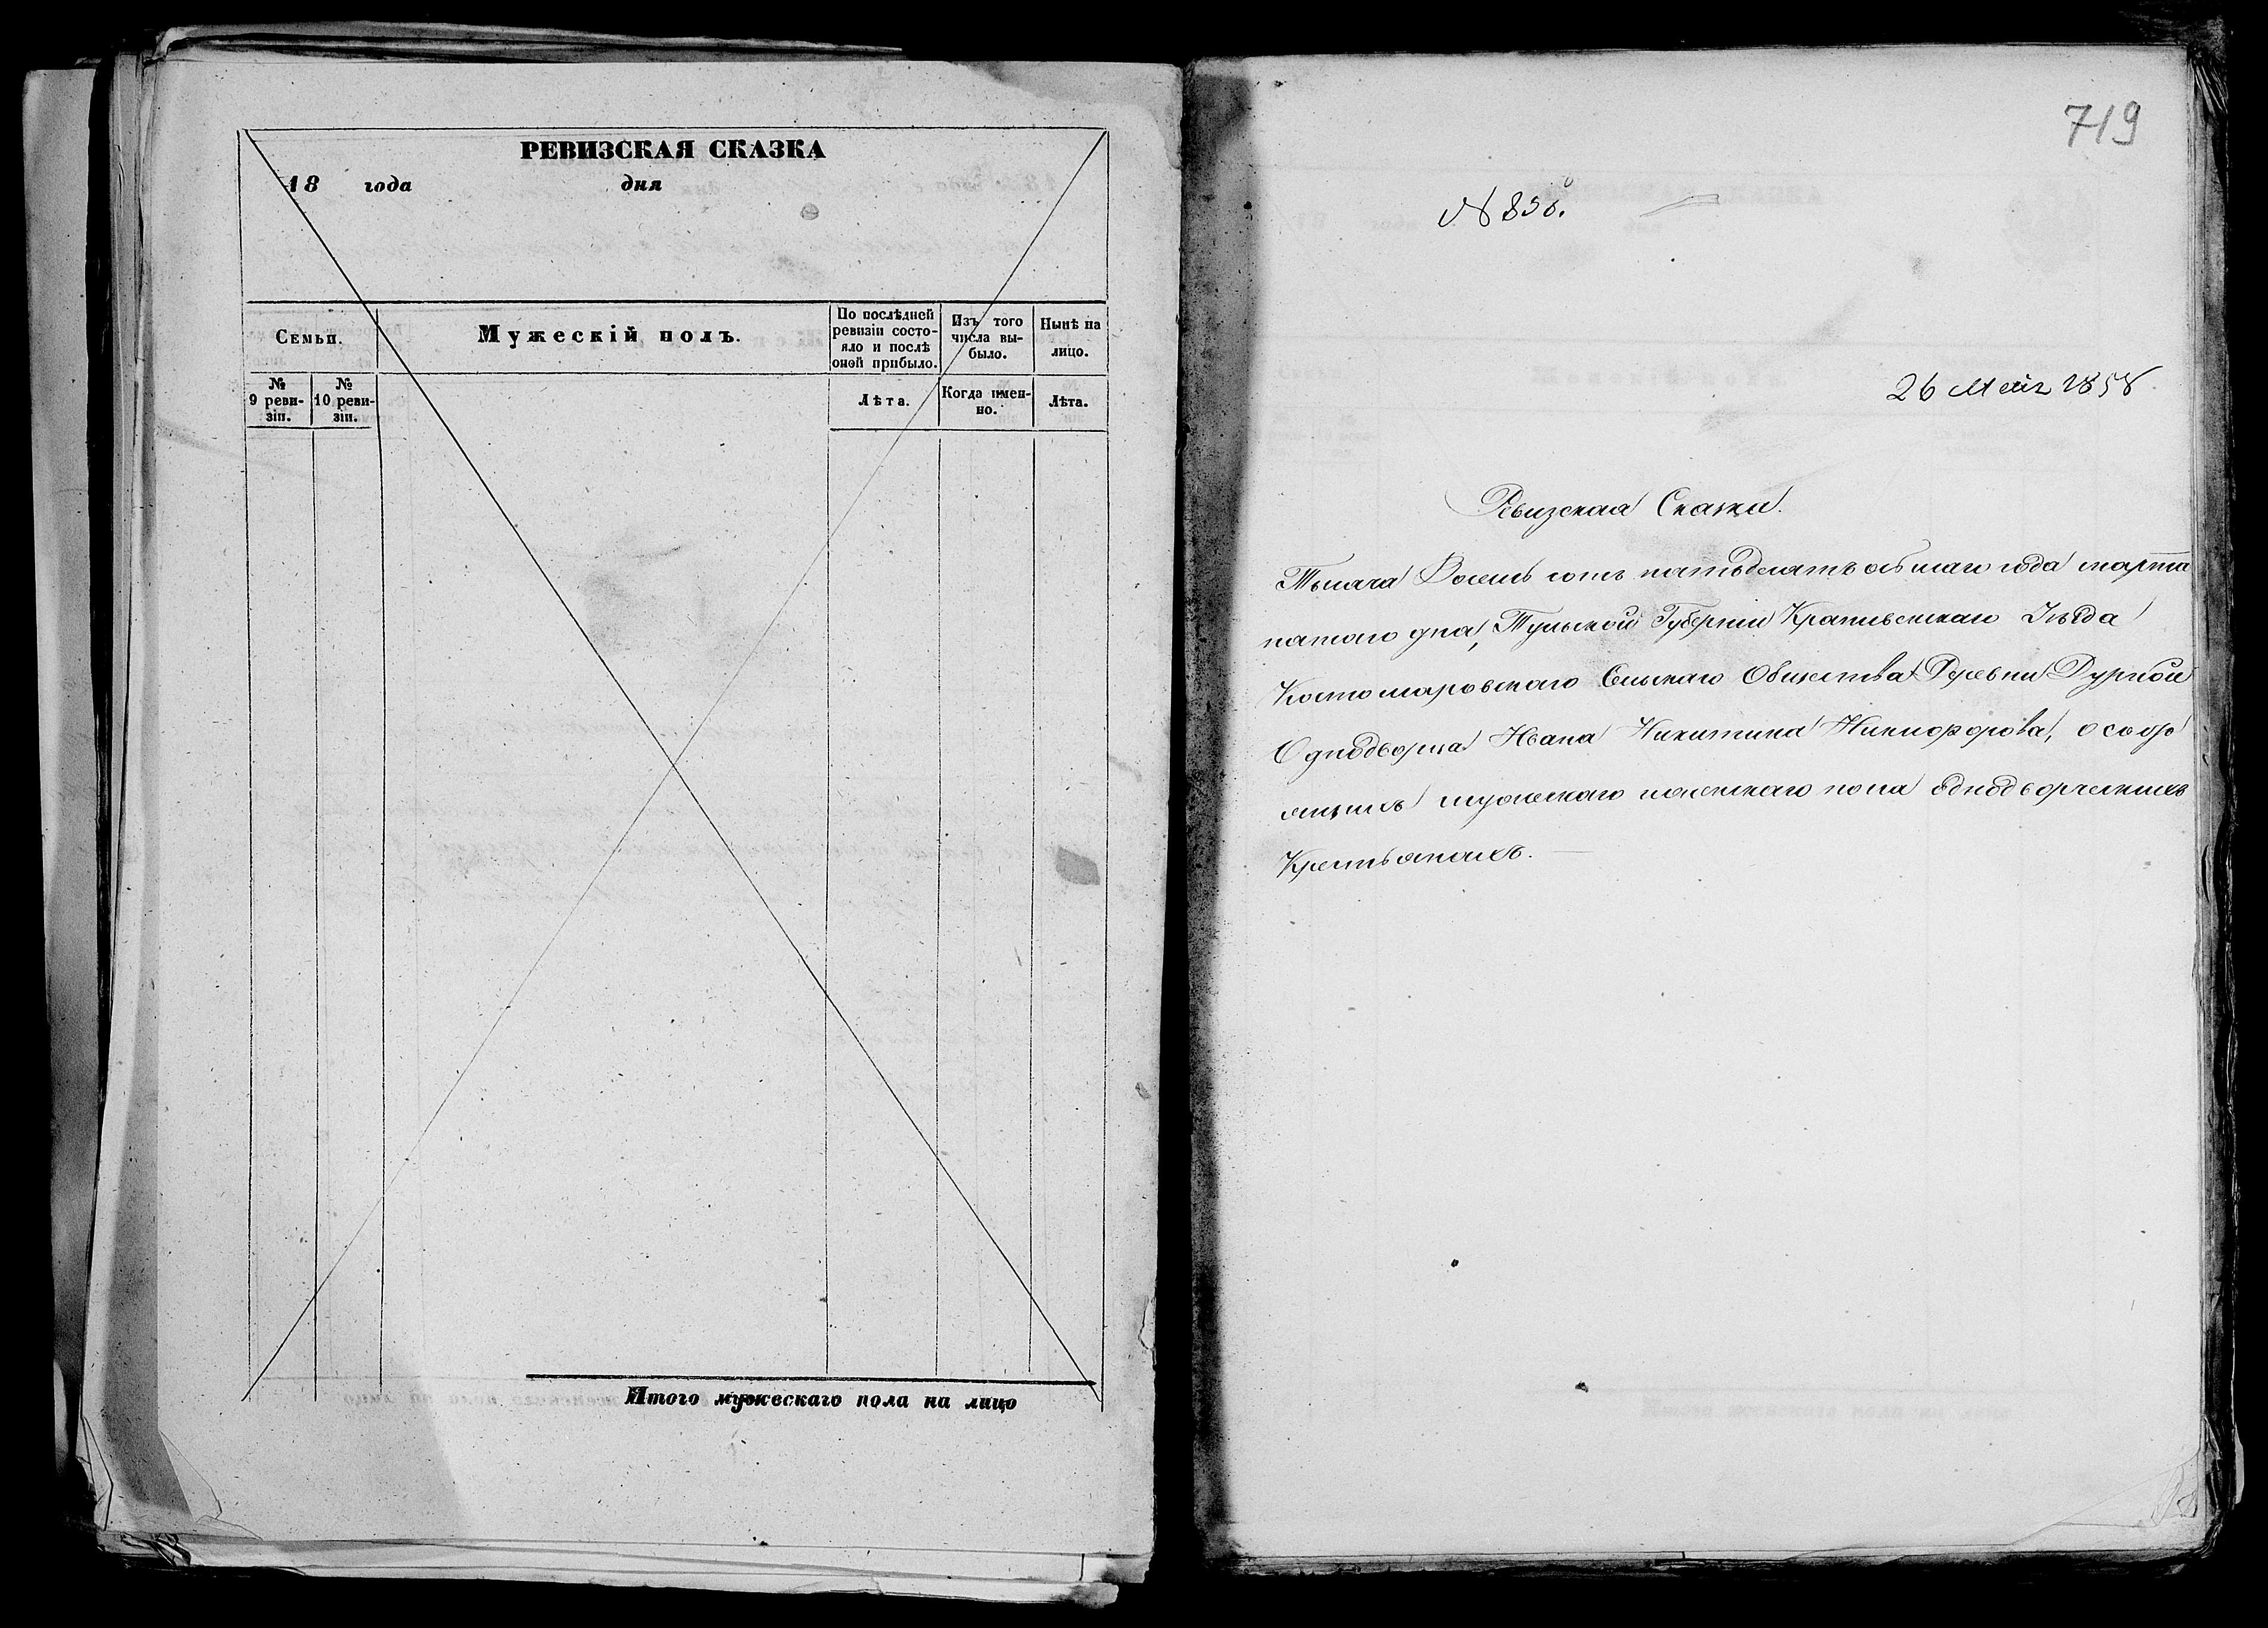 РЕВИЗСКАЯ СКАЗКА
18 года дня
Семьи.
Мужескій полъ.
По послѣдней ревизіи состо-
яло и послѣ оной прибыло.
Изъ того числа вы-
было.
Нынѣ на лицо.
№ 9 реви-
зіи.
№ 10 реви-
зіи.
Лѣта.
Когда имен-
но.
Лѣта.
Итого мужескаго пола на лицо
719
№ 850.
26 Мая 1858
Ревизская Сказка.
Тысяча Восемь сотъ пятьдесятъ осьмаго года марта
пятаго дня, Тульской Губерніи Крапивенскаго Уѣзда
Костомаровскаго Сельскаго Общества Деревни Дурной
Однодворца Ивана Никитина Никифорова, о состо
ящихъ мужескаго и женскаго пола однодворческихъ
Крестьянахъ.